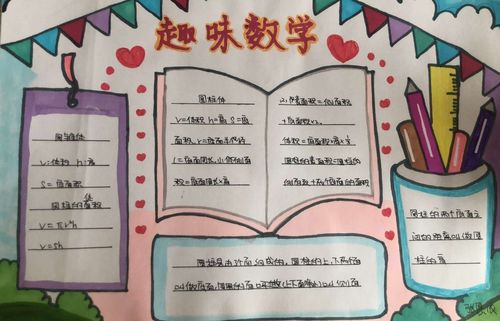 趣味数学
圆柱体
V=体积 h=高 S=底
面积 r=底面半径
C=底面周长 S侧=侧面
积=底面周长×高
2、表面积=侧面积
+底面积×2
体积=底面积×高
圆柱的表面积=圆柱的
侧面积+两个底面的面积
圆柱体
V:体积 h:高
S=底面积
圆柱的体积
V=πr²h
V=sh
圆柱的两个底面之
间的距离叫做圆
柱的高
圆柱是由3个面组成的,圆柱的上、下两个面
叫做底面,圆柱的面
叫侧面